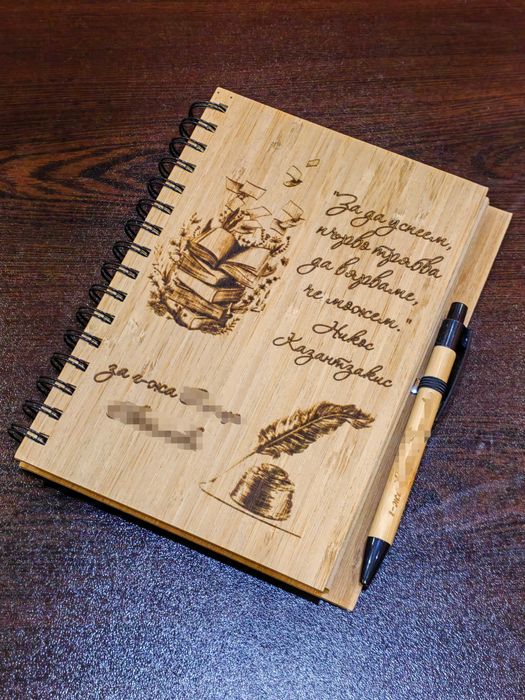 "За да успеем,
първо трябва
да вярваме,
че можем."
Никос
Казантзакис
за г-жа